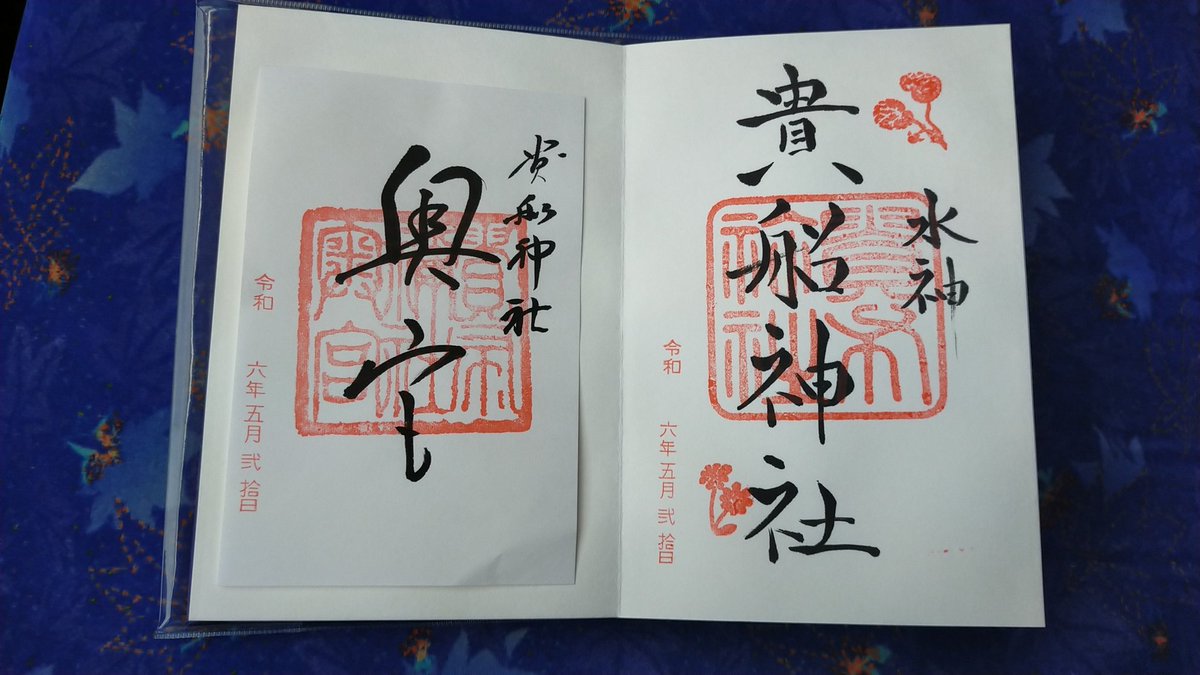 水神
貴船神社
令和 六年五月弐拾日
貴船神社
奥宮
令和 六年五月弐拾日